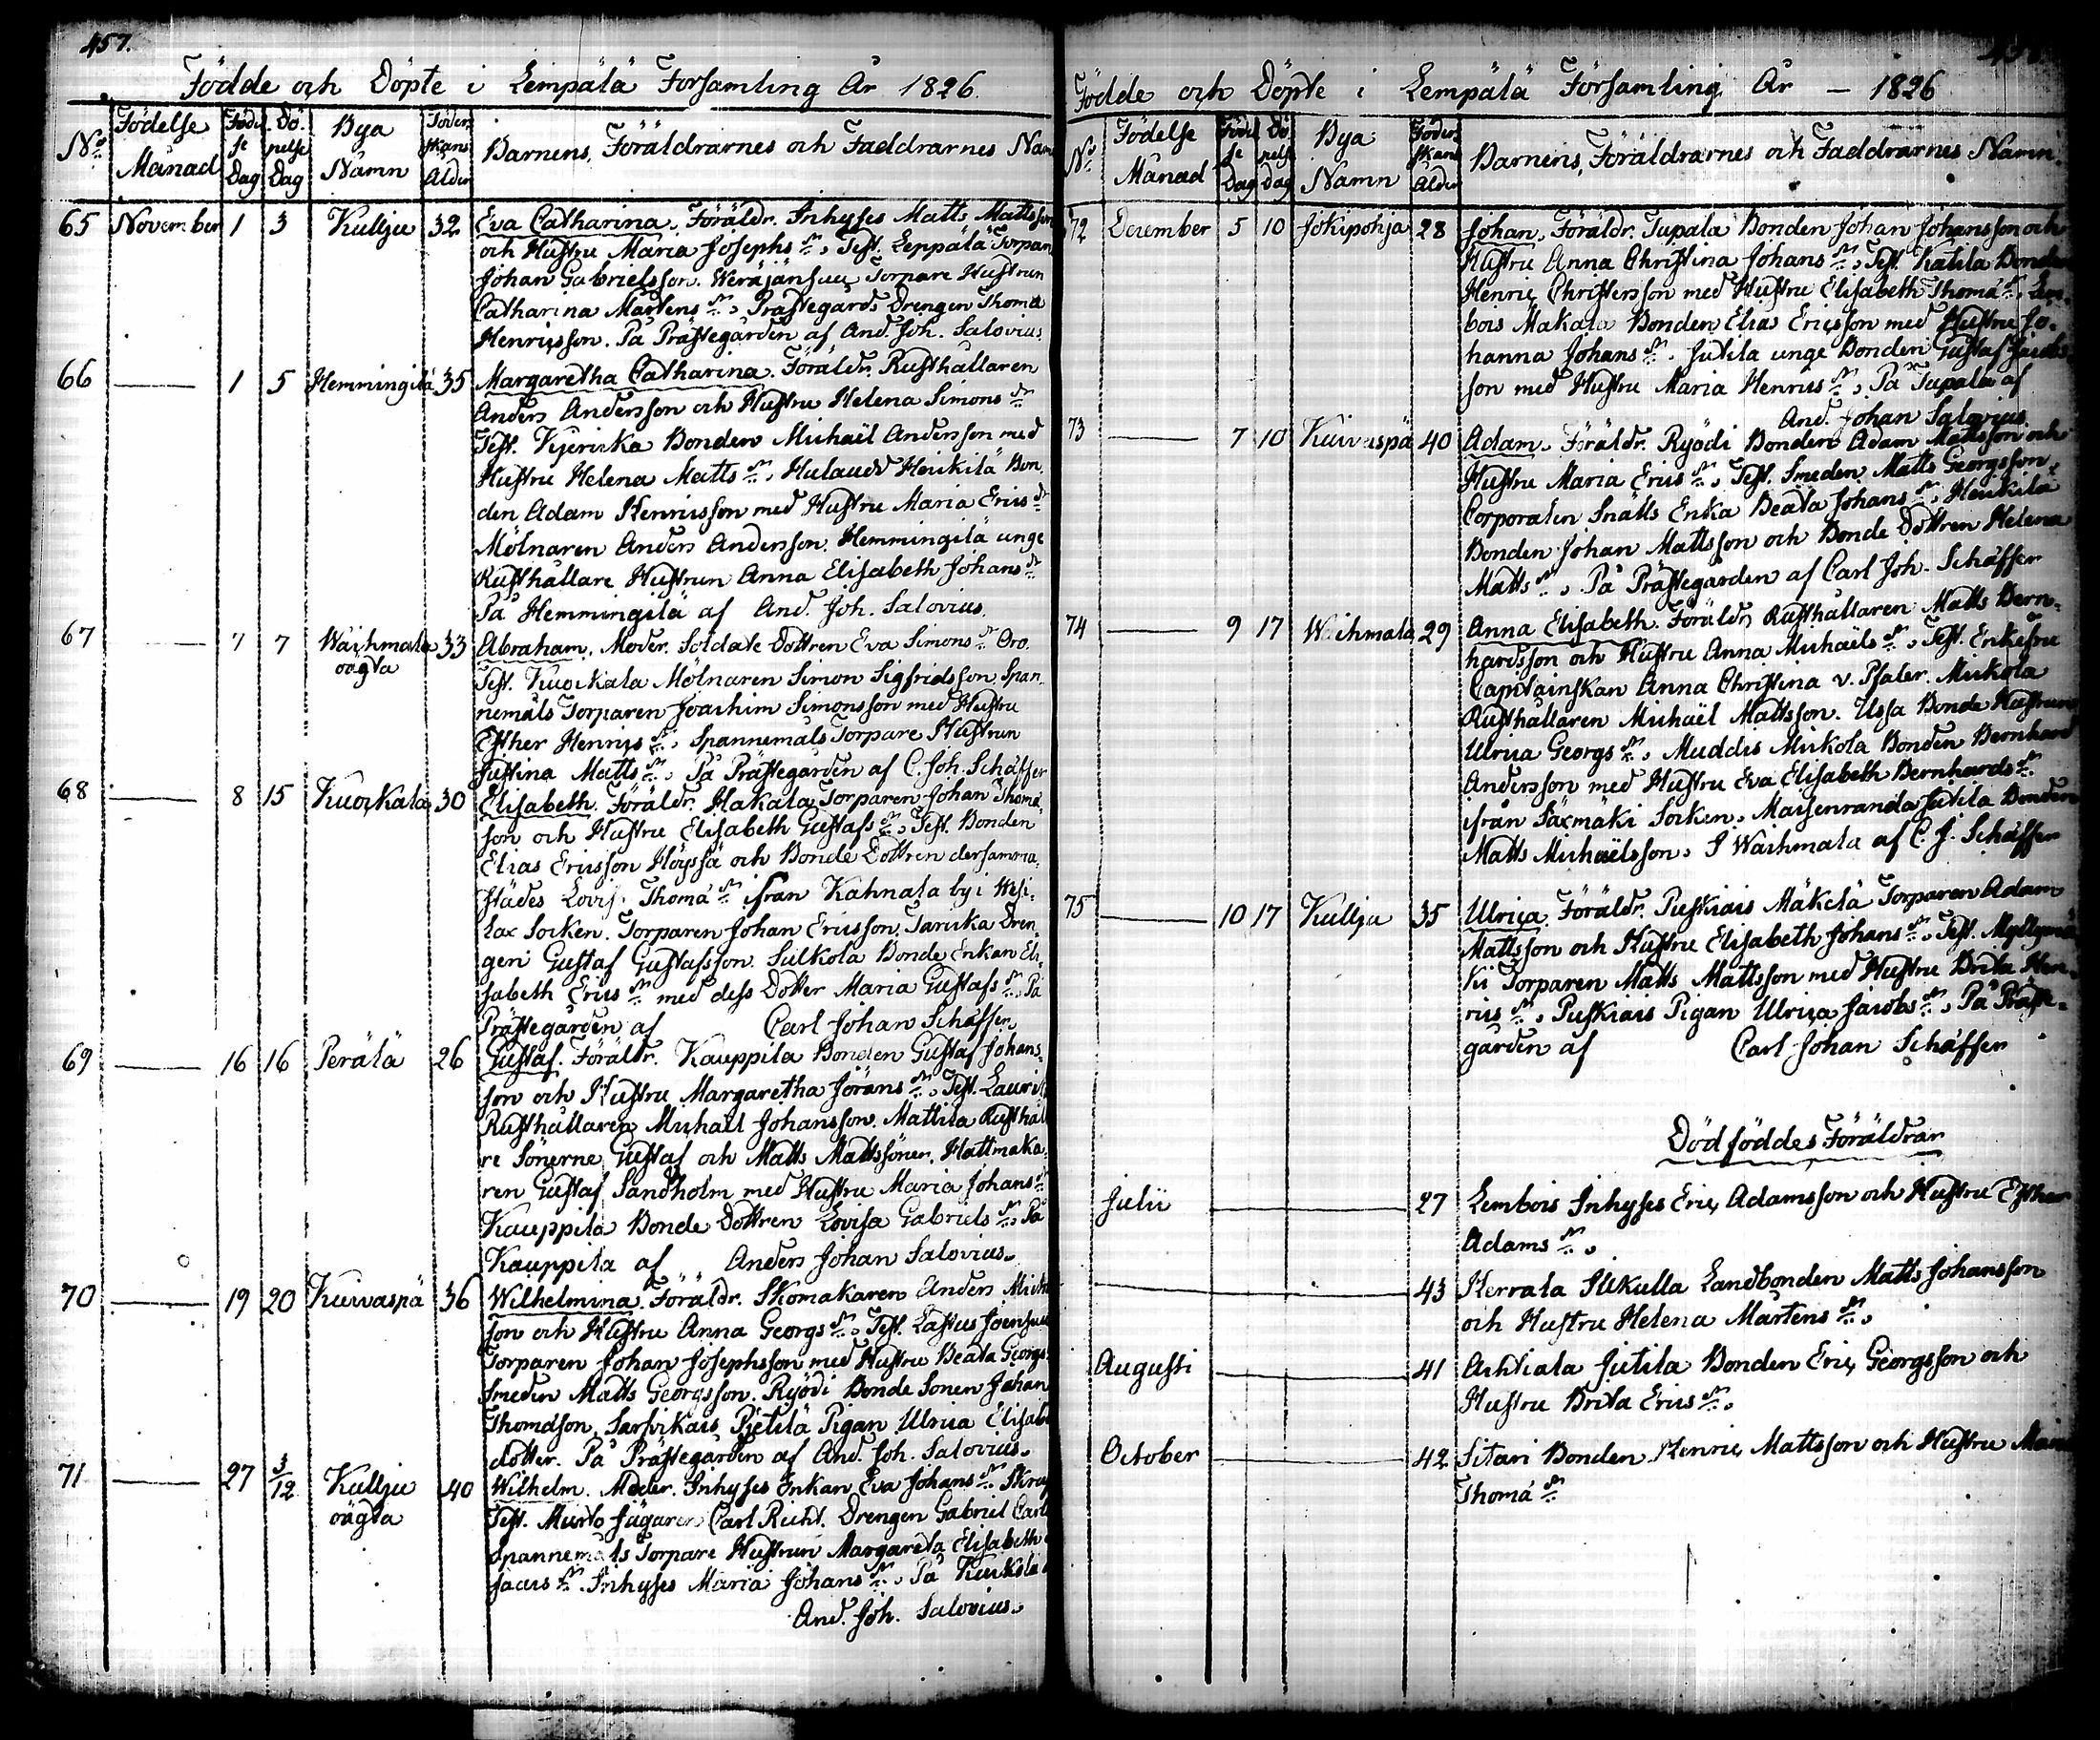 457.
Födde och Döpte i Lempälä Forsamling År 1826.
Nº Födelse Månad Födel se Dag Dö pelse Dag Bya Namn Föder skans Ålder Barnens, Föräldrarnes och Faddrarnes Namn
65 November 1 3 Kullju 32 Eva Catharina. Föräldr. Inhyses Matts Mattsson
och Hustru Maria Josephs dr. Test. Leppälä Torparn
Johan Gabrielsson. Weräjänsuu Torpare Hustrun
Catharina Mårtens dr. Prästegårds Drengen Thomas
Henricsson. På Prästegården af And. Joh. Salovius.
66 — 1 5 Hemmingilä 35 Margaretha Catharina. Föräldr. Rusthållaren
Anders Andersson och Hustru Helena Simons dr
Test. Bonden Michaël Andersson med
Hustru Helena Matts dr. Hulaud Heikilä Bon
den Adam Henricsson med Hustru Maria Erics dr
Mölnaren Anders Andersson. Hemmingilä unge
Rusthållare Hustrun Anna Elisabeth Johans dr
På Hemmingilä af And. Joh. Salovius.
67 — 7 7 Waihmala oägta 33 Abraham. Moder. Soldate Dottren Eva Simons dr Oro.
Test. Kuockala Mölnaren Simon Sigfridsson Span
nemåls Torparen Joachim Simonsson med Hustru
Esther Henrics dr. Spannemåls Torpare Hustrun
Justina Matts dr. På Prästegården af C. Joh. Schäffer
68 — 8 15 Kuockala 30 Elisabeth. Föräldr. Hakala Torparen Johan Thomæ
son och Hustru Elisabeth Gustafs dr. Test. Bonden
Elias Ericsson Höyssä och Bonde Dottren dersamma
städes Lovis. Thomæ dr ifrån Kahnala by i Wesi-
lax Socken. Torparen Johan Ericsson. Dren
gen Gustaf Gustafsson. Sulkola Bonde Enkan Eli
sabeth Erics dr med dess Dotter Maria Gustafs dr. På
Prästegården af Carl Johan Schäffer.
69 — 16 16 Perälä 26 Gustaf. Föräldr. Kauppila Bonden Gustaf Johans
son och Hustru Margaretha Jörans dr. Test. Lauri
Rusthållaren Michaël Johansson. Mattila Rusthål
re Sönerne Gustaf och Matts Mattssöner. Hattmaka
ren Gustaf Sandholm med Hustru Maria Johans dr
Kauppila Bonde Dottren Lovisa Gabriels dr. På
Kauppila af Anders Johan Salovius.
70 — 19 20 Kuivaspä 36 Wilhelmina. Föräldr. Skomakaren Anders
son och Hustru Anna Georgs dr. Test. Lastus Joensuu
Torparen Johan Josephsson med Hustru Beata Georgs
Smeden Matts Georgsson. Ryödi Bonde Sonen Johan
Thomasson. Pietilä Pigan Ulrica Elisab
dotter. På Prästegården af And. Joh. Salovius.
71 — 27 3/12 Kullju oägta 40 Wilhelm. Moder. Inhyses Enkan Eva Johans dr
Test. Murto Jägaren Carl Richt. Drengen Gabriel Carls
Spannemåls Torpare Hustrun Margareta Elisabeth
dr. Inhyses Maria Johans dr. På
And. Joh. Salovius.
Födde och Döpte i Lempälä Församling År — 1826
Nº Födelse Månad Födel se Dag Dö pelse Dag Bya Namn Föder skans Ålder Barnens, Föräldrarnes och Faddrarnes Namn.
72 December 5 10 Jokipohja 28 Johan. Föräldr. Tupala Bonden Johan Johansson och
Hustru Anna Christina Johans dr. Test. Katila Bonden
Henric Christersson med Hustru Elisabeth Thomæ dr. Lem
bois Makala Bonden Elias Ericsson med Hustru Jo-
hanna Johans dr. Jutila unge Bonden Gustaf Jacobs
son med Hustru Maria Henrics dr. På Tupala af
And. Johan Salovius.
73 — 7 10 Kuivaspä 40 Adam. Föräldr. Ryödi Bonden Adam Mattsson och
Hustru Maria Erics dr. Test. Smeden Matts Georgsson.
Corporalen Snälls Enka Beata Johans dr. Heikilä
Bonden Johan Mattsson och Bonde Dottren Helena
Matts dr. På Prästegården af Carl Joh. Schäffer
74 — 9 17 Waihmala 29 Anna Elisabeth. Föräldr. Rusthållaren Matts Bern-
hardsson och Hustru Anna Michaels dr. Test. Enkefru
Captainskan Anna Christina v. Pfaler. Mickola
Rusthållaren Michaël Mattsson. Ussa Bonde Hustrun
Ulrica Georgs dr. Muddis Mickola Bonden Bernhard
Andersson med Hustru Eva Elisabeth Bernhards dr
ifrån Säxmäki Socken. Maisenranda Jutila Bonden
Matts Michaëlsson. I Waihmala af C. J. Schäffer
75 — 10 17 Kullju 35 Ulrica. Föräldr. Puskiais Mäkelä Torparen Adam
Mattsson och Hustru Elisabeth Johans dr. Test. Myllymä
ki Torparen Matts Mattsson med Hustru Brita Hen-
rics dr. Puskiais Pigan Ulrica Jacobs dr. På Präste-
gården af Carl Johan Schäffer
Dödföddes Föräldrar
Julii — 27 Lembois Inhyses Eric Adamsson och Hustru Esther
Adams dr.
— 43 Herrala Landbonden Matts Johansson
och Hustru Helena Mårtens dr.
Augusti — 41 Achtiala Jutila Bonden Eric Georgsson och
Hustru Brita Erics dr.
October — 42 Sitari Bonden Henric Mattsson och Hustru Maria
Thomæ dr